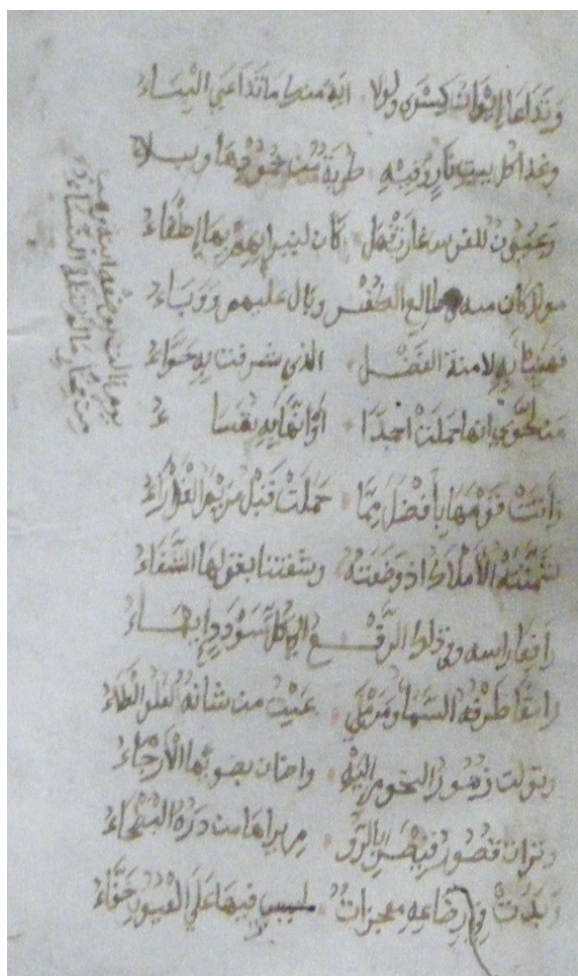 وَتَدَاعَا إِيْوَانُ كِسْرَى وَلَولَا ايَة منك مَا تَدَاعَى البِنَاءُ
وغدا كل بيتِ نَارٍ وَفِيْهِ كربَة مِنْ خُمُوْدِهَا وبلاءُ
وَعُيُوْنٌ لِلفرس غَارَتْ فَهَل كَانَ لِنِيرانِهِمْ بِهَا إِطْفَاءُ
مولد كان منه طالع الكُفْر وبال عليهم وَوَبَاءُ
فهنيئا بِهِ لامنة الفَضْل الذي شرفت بِهِ حَوَّاءُ
مَن لحَوَّى انها حَمَلَتْ احمدا أَوْ انَّهَا بِهِ نُفَسَاءُ
وَأَتَتْ قَوْمَهَا بِأَفْضَلَ مِمَّا حَمَلَتْ قَبْلُ مَرْيَمُ العَذْرَاءُ
شَمَّتَتْهُ الأَمْلَاكُ اذ وَضَعَتْهُ وشفتنا بقولها الشَّفَاءُ
رَافِعًا راسه وفي ذلك الرَّفْعِ الى كُلِّ سَوْدَدٍ إِيمَاءُ
رَامِقًا طَرْفُهُ السَّمَا وَمَرْمَى عَيْنِ من شانه العُلُو العَلَاءُ
وتدلت زهور النجوم إِلَيْهِ واضات بضوئها الأَرْجَاءُ
وتران قُصُورُ قَيْصَرَ بِالرُّو مِ يراها من دَارُهُ البَطْحَاءُ
وَبَدَتْ فِي رِضَاعِهِ مُعجِزاتٌ ليس فيها عَلَى العُيُونِ خَفَاءُ
يوم نالت بوضعه ابنة وهب
من فخار مالم تنله النساء